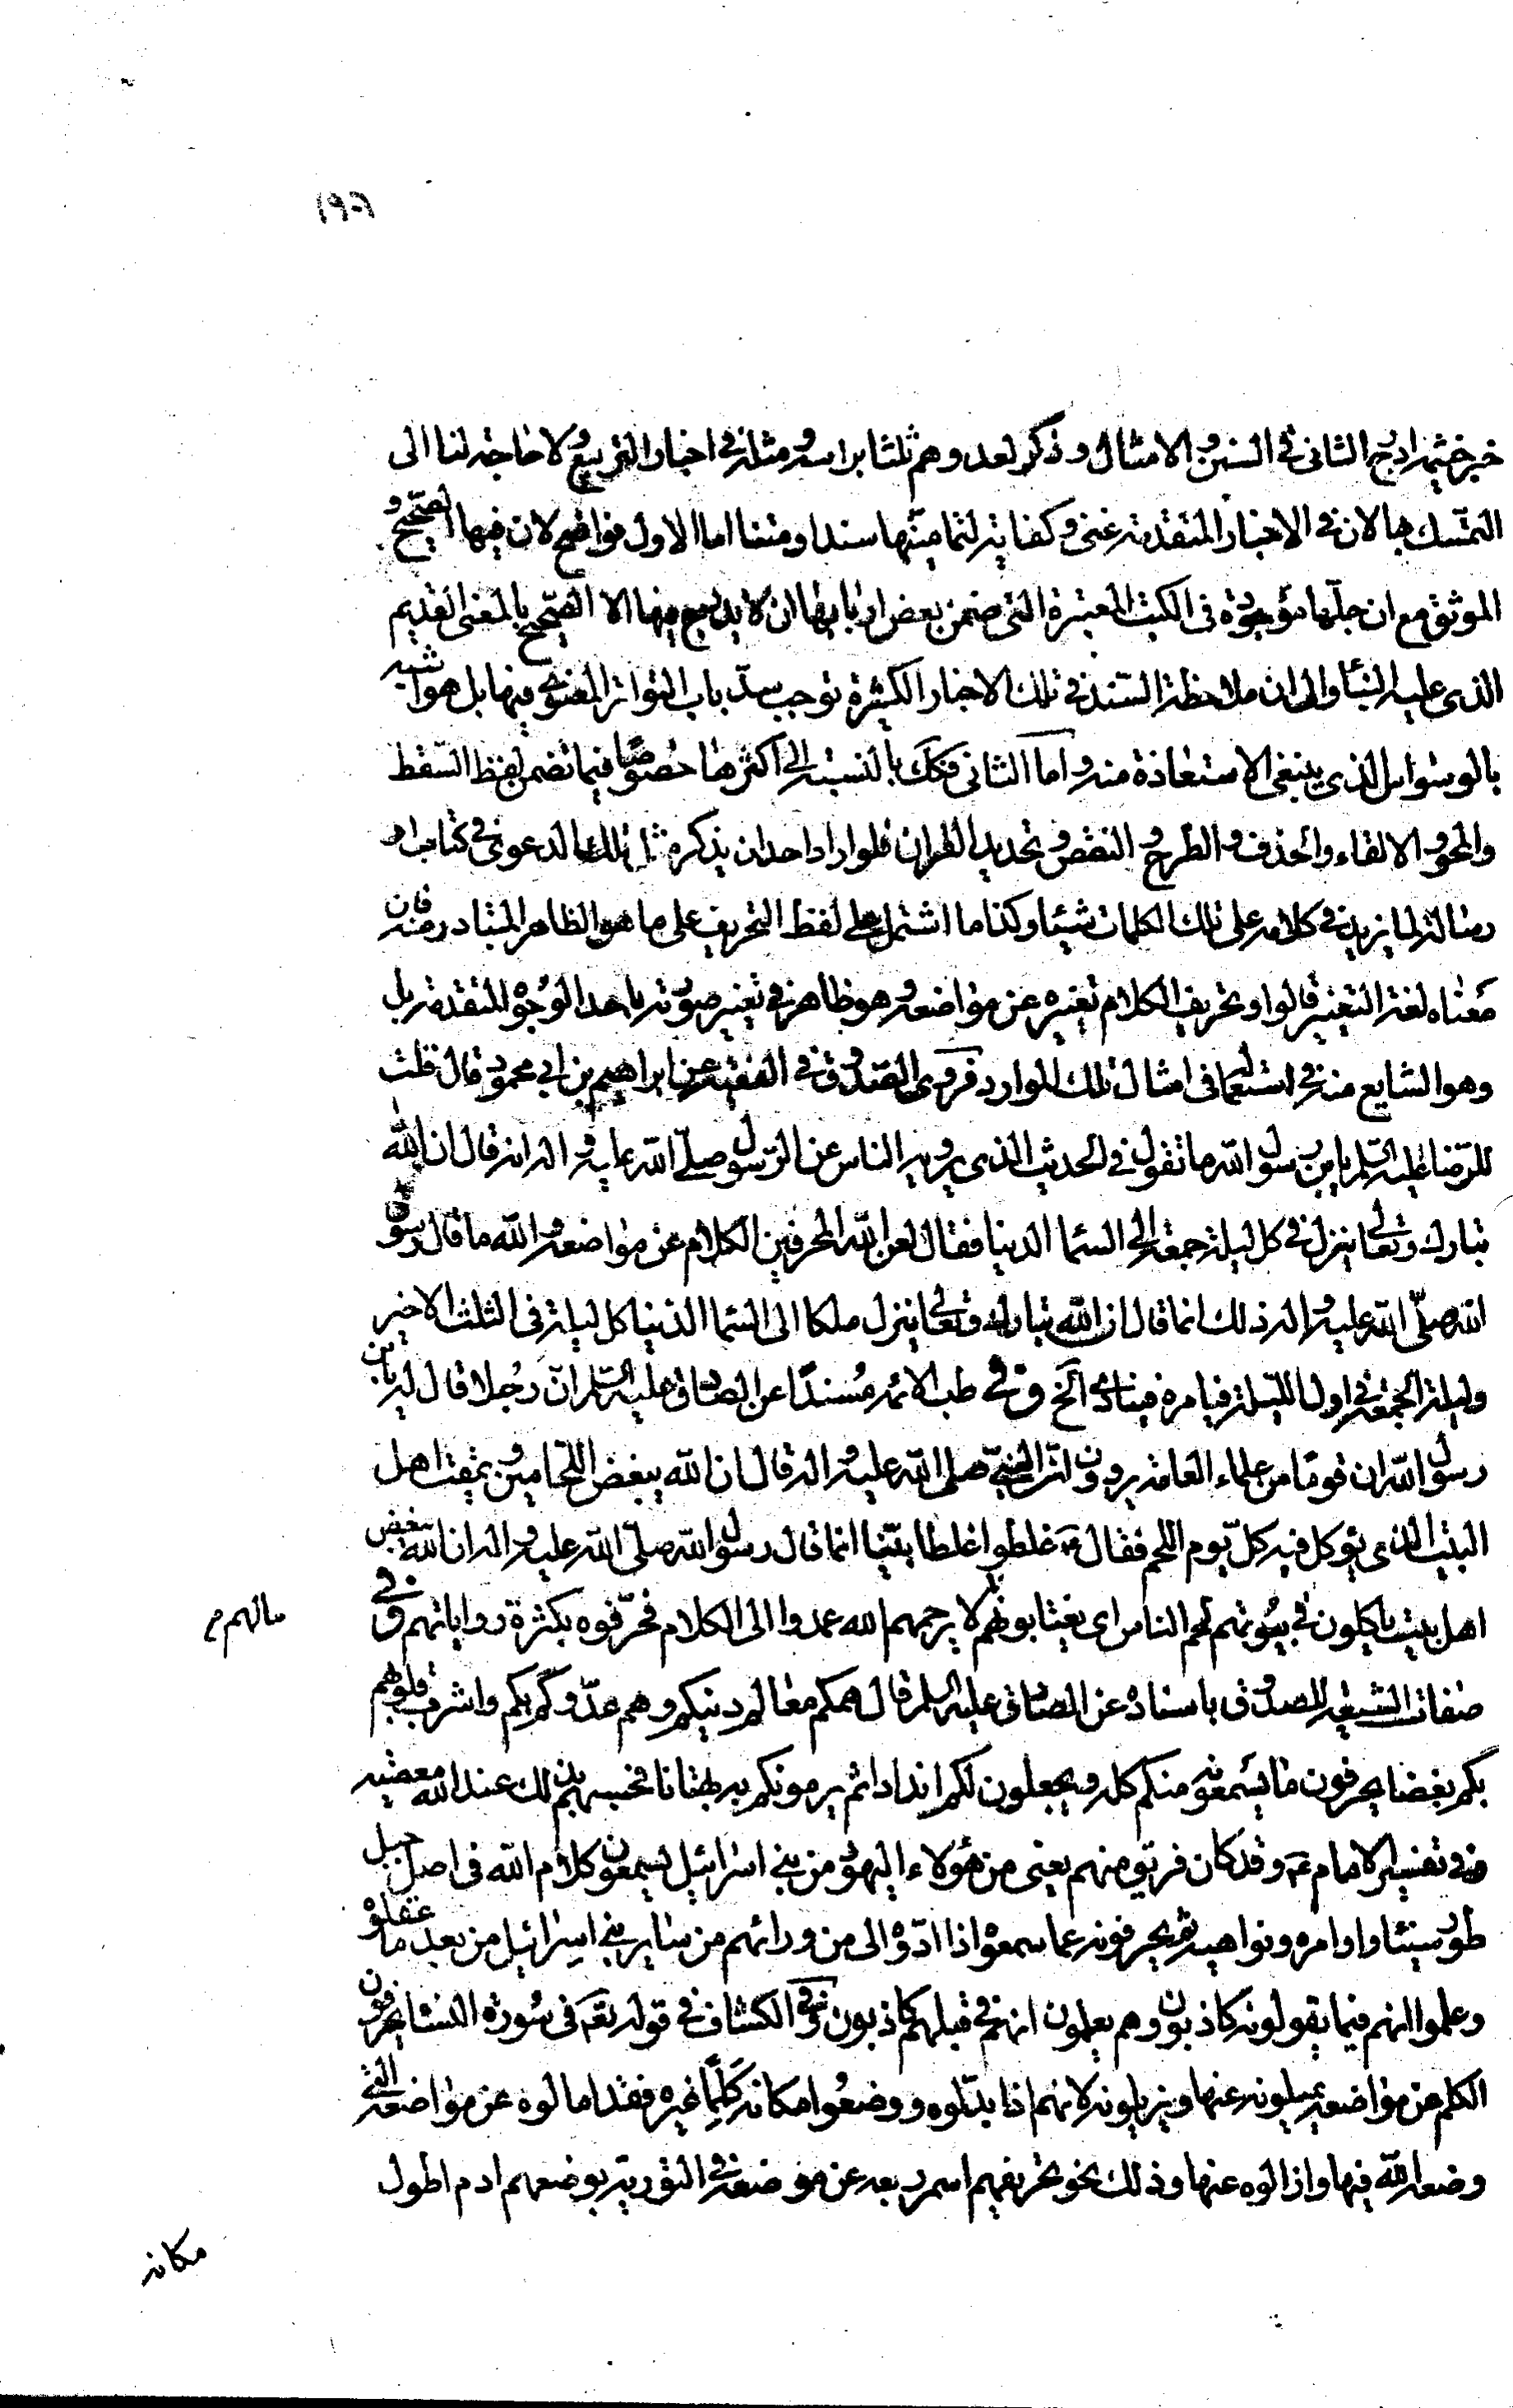 خبر خيثمة ادرج الثاني في السنن والامثال وذكر لعدوهم ثلثا براسه ومثله في اخبار التربيع ولا حاجة لنا الى
التمسك بها لان في الاخبار المتقدمة غنى وكفاية لتماميتها سندا ومتنا اما الاول فواضح لان فيها الصحيح و
الموثق مع ان جلها موجودة في الكتب المعتبرة التي ضمن بعض اربابها ان لا يدرج فيها الا الصحيح بالمعنى القديم
الذي عليه البناء والى ان ملاحظة السند في تلك الاخبار الكثيرة توجب سد باب التواتر المعنوي فيها بل هو اشبه
بالوسواس الذي ينبغي الاستعاذة منه واما الثاني فكك بالنسبة الى اكثرها خصوصا فيما تضمن لفظ السقط
والمحو والالقاء والحذف والطرح والنقص وتحديد القران فلو اراد احد ان يذكر مثل تلك الدعوى في كتاب او
رسالة لما يزيد في كلامه على تلك الكلمات شيئا وكذا ما اشتمل على لفظ التحريف على ما هو الظاهر المتبادر منه فان
معناه لغة التغيير قالوا وتحريف الكلام تغييره عن مواضعه وهو ظاهر في تغيير صورته باحد الوجوه المتقدمة بل
وهو الشايع منه في استعمالها في امثال تلك الموارد فروى الصدوق في الفقيه عن ابراهيم بن ابي محمود قال قلت
للرضا عليه السلم يابن رسول الله ما تقول في الحديث الذي يرويه الناس عن الرسول صلى الله عليه واله انه قال ان الله
تبارك وتعالى ينزل في كل ليلة جمعة الى السماء الدنيا فقال لعن الله المحرفين الكلام عن مواضعه والله ما قال رسول
الله صلى الله عليه واله ذلك انما قال ان الله تبارك وتعالى ينزل ملكا الى السماء الدنيا كل ليلة في الثلث الاخير
وليلة الجمعة في اول الليلة فيامره فينادي الخ وفي طب الائمة مسندا عن الصادق عليه السلم ان رجلا قال له يابن
رسول الله ان قوما من علماء العامة يروون ان النبي صلى الله عليه واله قال ان الله يبغض اللحامين ويمقت اهل
البيت الذي يؤكل فيه كل يوم اللحم فقال ع غلطوا غلطا بينا انما قال رسول الله صلى الله عليه واله ان الله يبغض
اهل بيت ياكلون في بيوتهم لحم الناس اي يغتابونهم لا يرحمهم الله عمدوا الى الكلام فحرفوه بكثرة رواياتهم وفي
مالهم م
صفات الشيعة للصدوق باسناده عن الصادق عليه السلم قال همكم معالم دينكم وهم عدوكم بكم واشرب قلوبهم
بكم بغضا يحرفون ما يسمعونه منكم كله ويجعلون لكم اندادا ثم يرمونكم به بهتانا فحسبهم بذلك عند الله معصية
وفي تفسير الامام ع وقد كان فريق منهم يعني من هؤلاء اليهود من بني اسرائيل يسمعون كلام الله في اصل جبل
طور سيناء واوامره ونواهيه ثم يحرفونه عما سمعوه اذا ادوه الى من ورائهم من ساير بني اسرائيل من بعد ما عقلوه
وعلموا انهم فيما يقولونه كاذبون وهم يعلمون انهم في قيلهم كاذبون وفي الكشاف في قوله تعه في سورة النساء يحرفون
الكلم عن مواضعه يميلونه عنها ويزيلونه لانهم اذا بدلوه ووضعوا مكانه كلما غيره فقد امالوه عن مواضعه التي
وضعه الله فيها وازالوه عنها وذلك نحو تحريفهم اسمر ربعة عن موضعه في التورية بوضعهم ادم اطول
مكانه